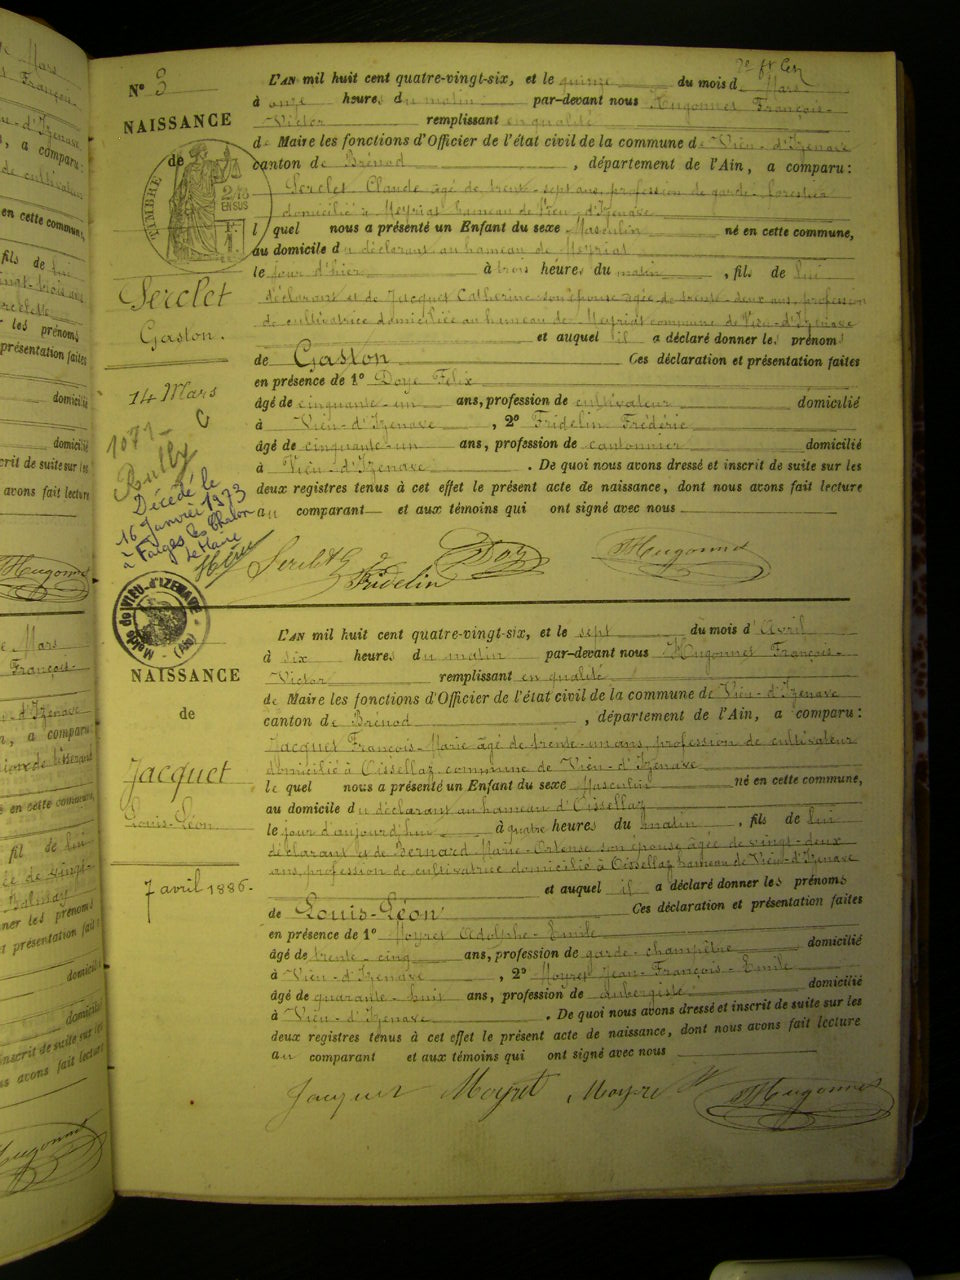 2e ft
N° 3
L'AN mil huit cent quatre-vingt-six, et le quinze du mois d Mars
à onze heures du matin par-devant nous Hugonnet François-
Victor remplissant en qualité
NAISSANCE
de Maire les fonctions d'Officier de l'état civil de la commune de Vieu-d'Izenave
de
canton de Brénod, département de l'Ain, a comparu:
TIMBRE
2/10
EN SUS
Serclet Claude âgé de trente-sept ans, profession de garde-forestier
domicilié à Meyriat hameau de Vieu-d'Izenave
l quel nous a présenté un Enfant du sexe Masculin né en cette commune,
au domicile du déclarant au hameau de Meyriat
le jour d'hier à trois heures du matin, fils de lui
Serclet
Gaston.
14 Mars
déclarant et de Jacquet Catherine son épouse âgée de trente-deux ans, profession
de cultivatrice domiciliée au hameau de Meyriat commune de Vieu-d'Izenave
et auquel il a déclaré donner les prénoms
de Gaston Ces déclaration et présentation faites
en présence de 1° Doye Félix
âgé de cinquante-un ans, profession de cultivateur domicilié
à Vieu-d'Izenave, 2° Fridelin Frédéric
âgé de cinquante-un ans, profession de cantonnier domicilié
à Vieu-d'Izenave. De quoi nous avons dressé et inscrit de suite sur les
deux registres tenus à cet effet le présent acte de naissance, dont nous avons fait lecture
au comparant et aux témoins qui ont signé avec nous
1071- C
Rully
Décédé le
16 Janvier 1973
à Farges les Chalon
Le Maire
Serclet Fridelin Doy Hugonnet
Mairie de VIEU-d'IZENAVE (Ain)
L'AN mil huit cent quatre-vingt-six, et le sept du mois d'Avril
à six heures du matin par-devant nous Hugonnet François-
Victor remplissant en qualité
NAISSANCE
de
de Maire les fonctions d'Officier de l'état civil de la commune de Vieu-d'Izenave
canton de Brénod, département de l'Ain, a comparu:
Jacquet François-Marie âgé de trente-un ans, profession de cultivateur
domicilié à Oissellaz commune de Vieu-d'Izenave
le quel nous a présenté un Enfant du sexe Masculin né en cette commune,
au domicile du déclarant au hameau d'Oissellaz
le jour d'aujourd'hui à quatre heures du matin, fils de lui
Jacquet
Louis-Léon
7 avril 1886-
déclarant et de Bernard Marie-Ortense son épouse âgée de vingt-deux
ans, profession de cultivatrice domicilié à Oissellaz hameau de Vieu-d'Izenave
et auquel il a déclaré donner les prénoms
de Louis-Léon Ces déclaration et présentation faites
en présence de 1° Moyret Adolphe-Emile
âgé de trente-cinq ans, profession de garde-champêtre domicilié
à Vieu-d'Izenave, 2° Moyret Jean-François-Emile
âgé de quarante-huit ans, profession de aubergiste domicilié
à Vieu-d'Izenave. De quoi nous avons dressé et inscrit de suite sur les
deux registres tenus à cet effet le présent acte de naissance, dont nous avons fait lecture
au comparant et aux témoins qui ont signé avec nous
Jacquet Moyret Moyret Hugonnet